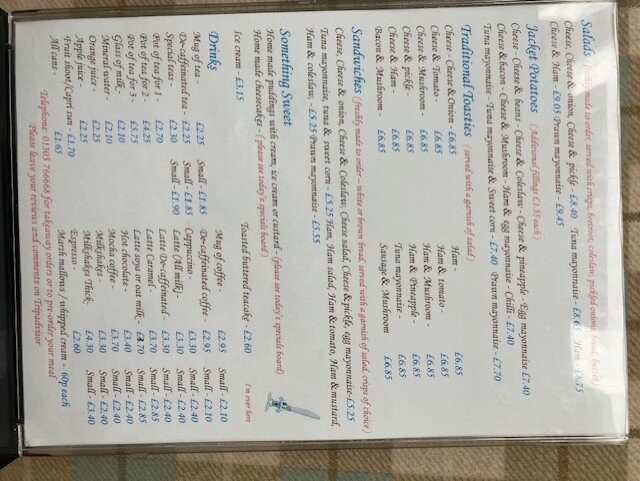 Salads (freshly made to order, served with crisps, beetroot, coleslaw, pickled onions, bread, butter)
Cheese, Cheese & onion, Cheese & pickle - £8.40 Tuna mayonnaise - £8.65 Ham -
Cheese & Ham £9.05 Prawn mayonnaise - £9.45
Jacket Potatoes (Additional fillings £1.55 each)
Cheese - Cheese & beans - Cheese & Coleslaw - Cheese & pineapple - Egg mayonnaise £7.40
Cheese & bacon - Cheese & Mushroom - Ham & egg mayonnaise - Chilli - £7.40
Tuna mayonnaise - Tuna mayonnaise & Sweet corn - £7.40 Prawn mayonnaise - £7.70
Traditional Toasties (served with a garnish of salad)
Cheese - Cheese & Onion - £6.85 Ham - £6.85
Cheese & Tomato - £6.85 Ham & tomato - £6.85
Cheese & Mushroom - £6.85 Ham & Mushroom - £6.85
Cheese & pickle - £6.85 Ham & Pineapple - £6.85
Cheese & Ham - £6.85 Tuna mayonnaise - £6.85
Bacon & Mushroom - £6.85 Sausage & Mushroom £6.85
Sandwiches (freshly made to order – white or brown bread, served with a garnish of salad, crisps of choice)
Cheese, Cheese & onion, Cheese & Coleslaw, Cheese salad, Cheese & pickle, egg mayonnaise-£5.25
Tuna mayonnaise, tuna & sweet corn - £5.25 Ham, Ham salad, Ham & tomato, Ham & mustard,
Ham & coleslaw, - £5.25 Prawn mayonnaise - £5.55
Something Sweet
Home made puddings with cream, ice cream or custard - (please see today's specials board)
Home made cheesecakes - (please see today's specials board)
Ice cream £3.15 Toasted buttered teacake - £2.60
I'm over here
Drinks
Mug of tea - £2.25 Small - £1.85 Mug of coffee - £2.95 Small - £2.10
De-caffeinated tea - £2.25 Small - £1.85 De-caffeinated coffee - £2.95 Small - £2.10
Special teas - £2.30 Small - £1.90 Cappuccino - £3.30 Small - £2.40
Pot of tea for 1 - £2.70 Latte (All milk) - £3.30 Small - £2.40
Pot of tea for 2 - £4.25 Latte De-caffeinated - £3.30 Small - £2.40
Pot of tea for 3 - £5.75 Latte Caramel - £3.70 Small - £2.85
Glass of milk £2.10 Latte soya or oat milk - £3.70 Small - £2.85
Mineral water - £2.10 Hot chocolate - £3.40 Small - £2.40
Orange juice - £2.25 Mocha coffee - £3.70 Small - £2.40
Apple juice £2.25 Milkshakes - £3.30 Small - £2.40
Fruit shoot/Capri sun - £1.70 Milkshakes Thick £4.30 Small - £3.40
All cans £1.65 Espresso - £2.60
Marsh mallows / whipped cream - 60p each
Telephone: 01305 766668 for takeaway orders or to pre-order your meal
Please leave your reviews and comments on Tripadvisor